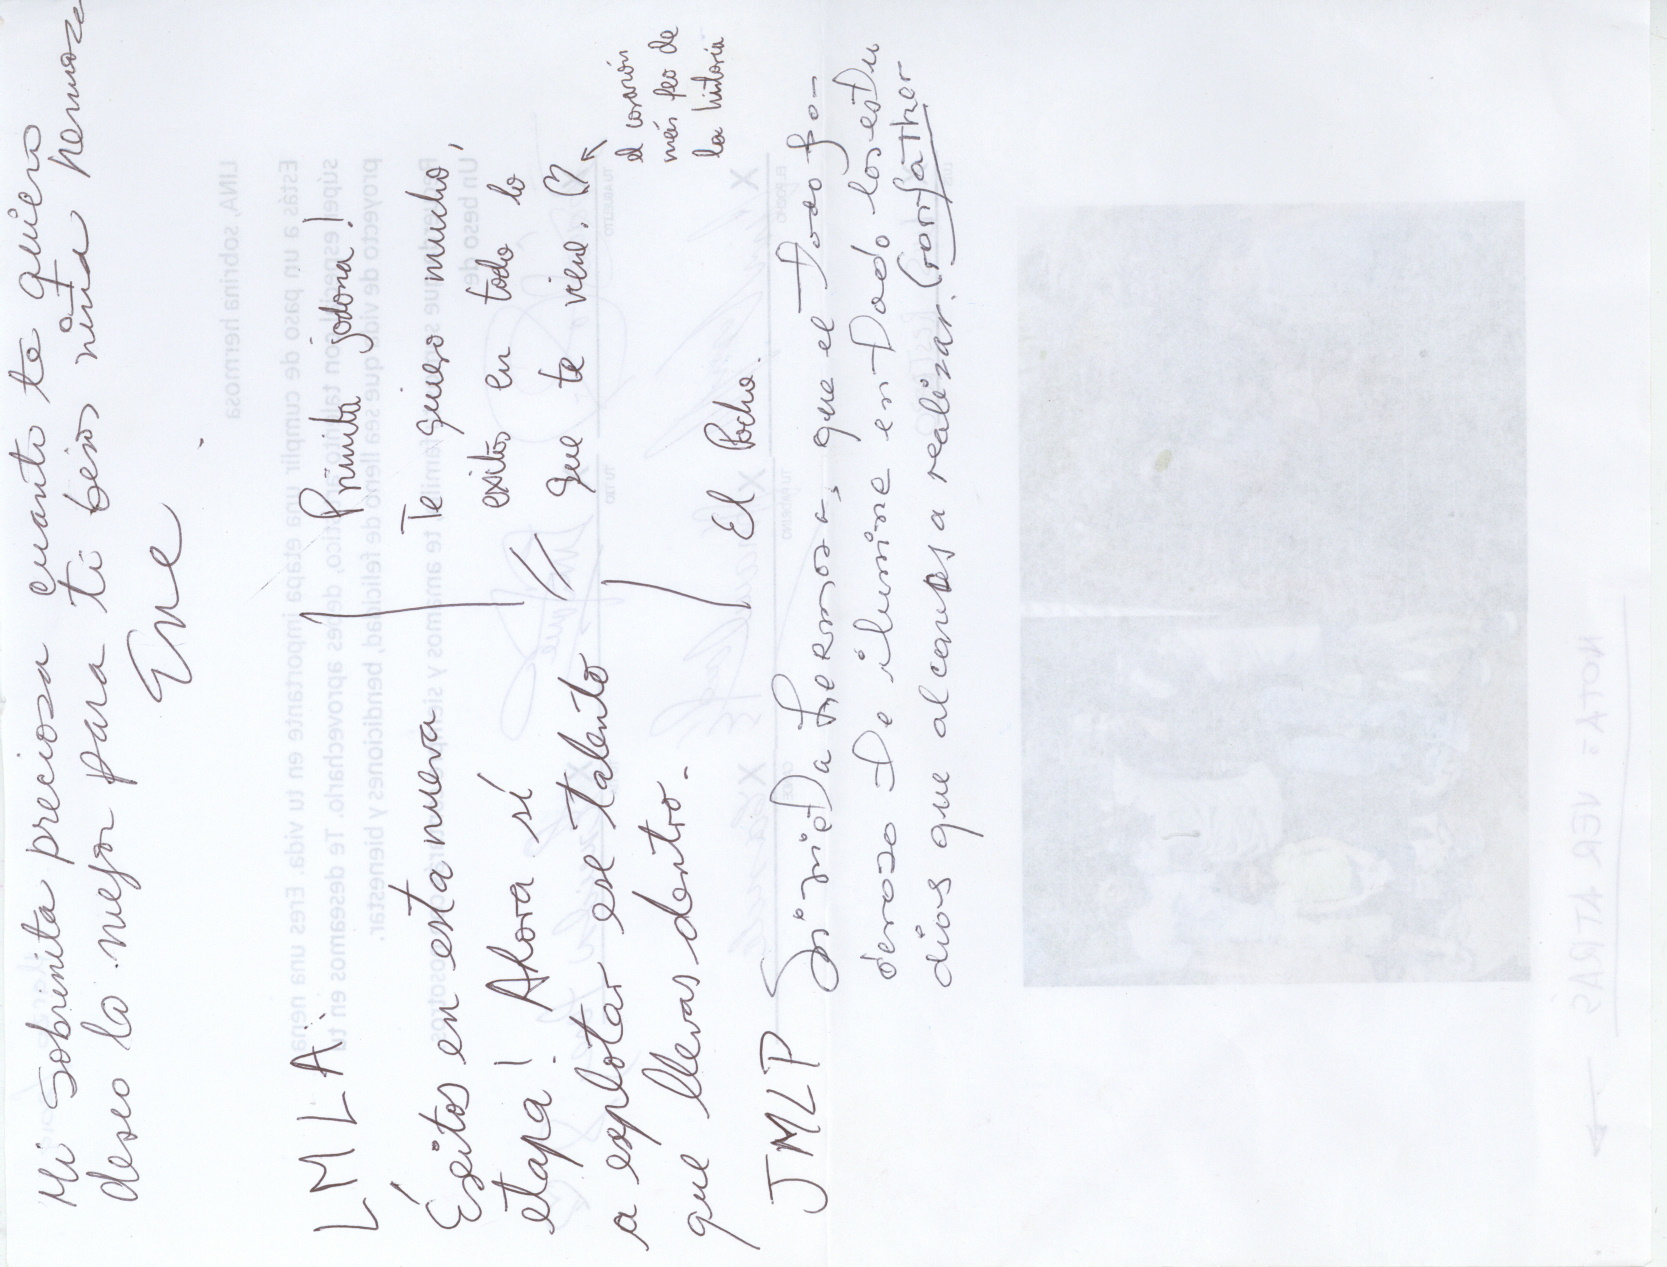 Mi sobrinita preciosa cuanto te quiero
deseo lo mejor para ti besos niñita hermosa
Ene
LMLA,
Éxitos en esta nueva
etapa! Ahora sí
a explotar ese talento
que llevas dentro.-
JMLP
Primita
jodona!
Te quiero mucho,
exitos en todo lo
que te viene.
el corazón
más feo de
la historia
El Pocho.
hermosa, que el Todo po-
deroso te ilumine en todo los estu
dios que alcances a realizar.
LINA, sobrina hermosa
Estás a un paso de cumplir una etapa importante en tu vida. Eres una nena
súper especial con talento artístico, debes aprovecharlo. Te deseamos en tu
proyecto de vida que sea lleno de felicidad, bendiciones y bienestar.
Un beso de
NOTA: VER ATRÁS